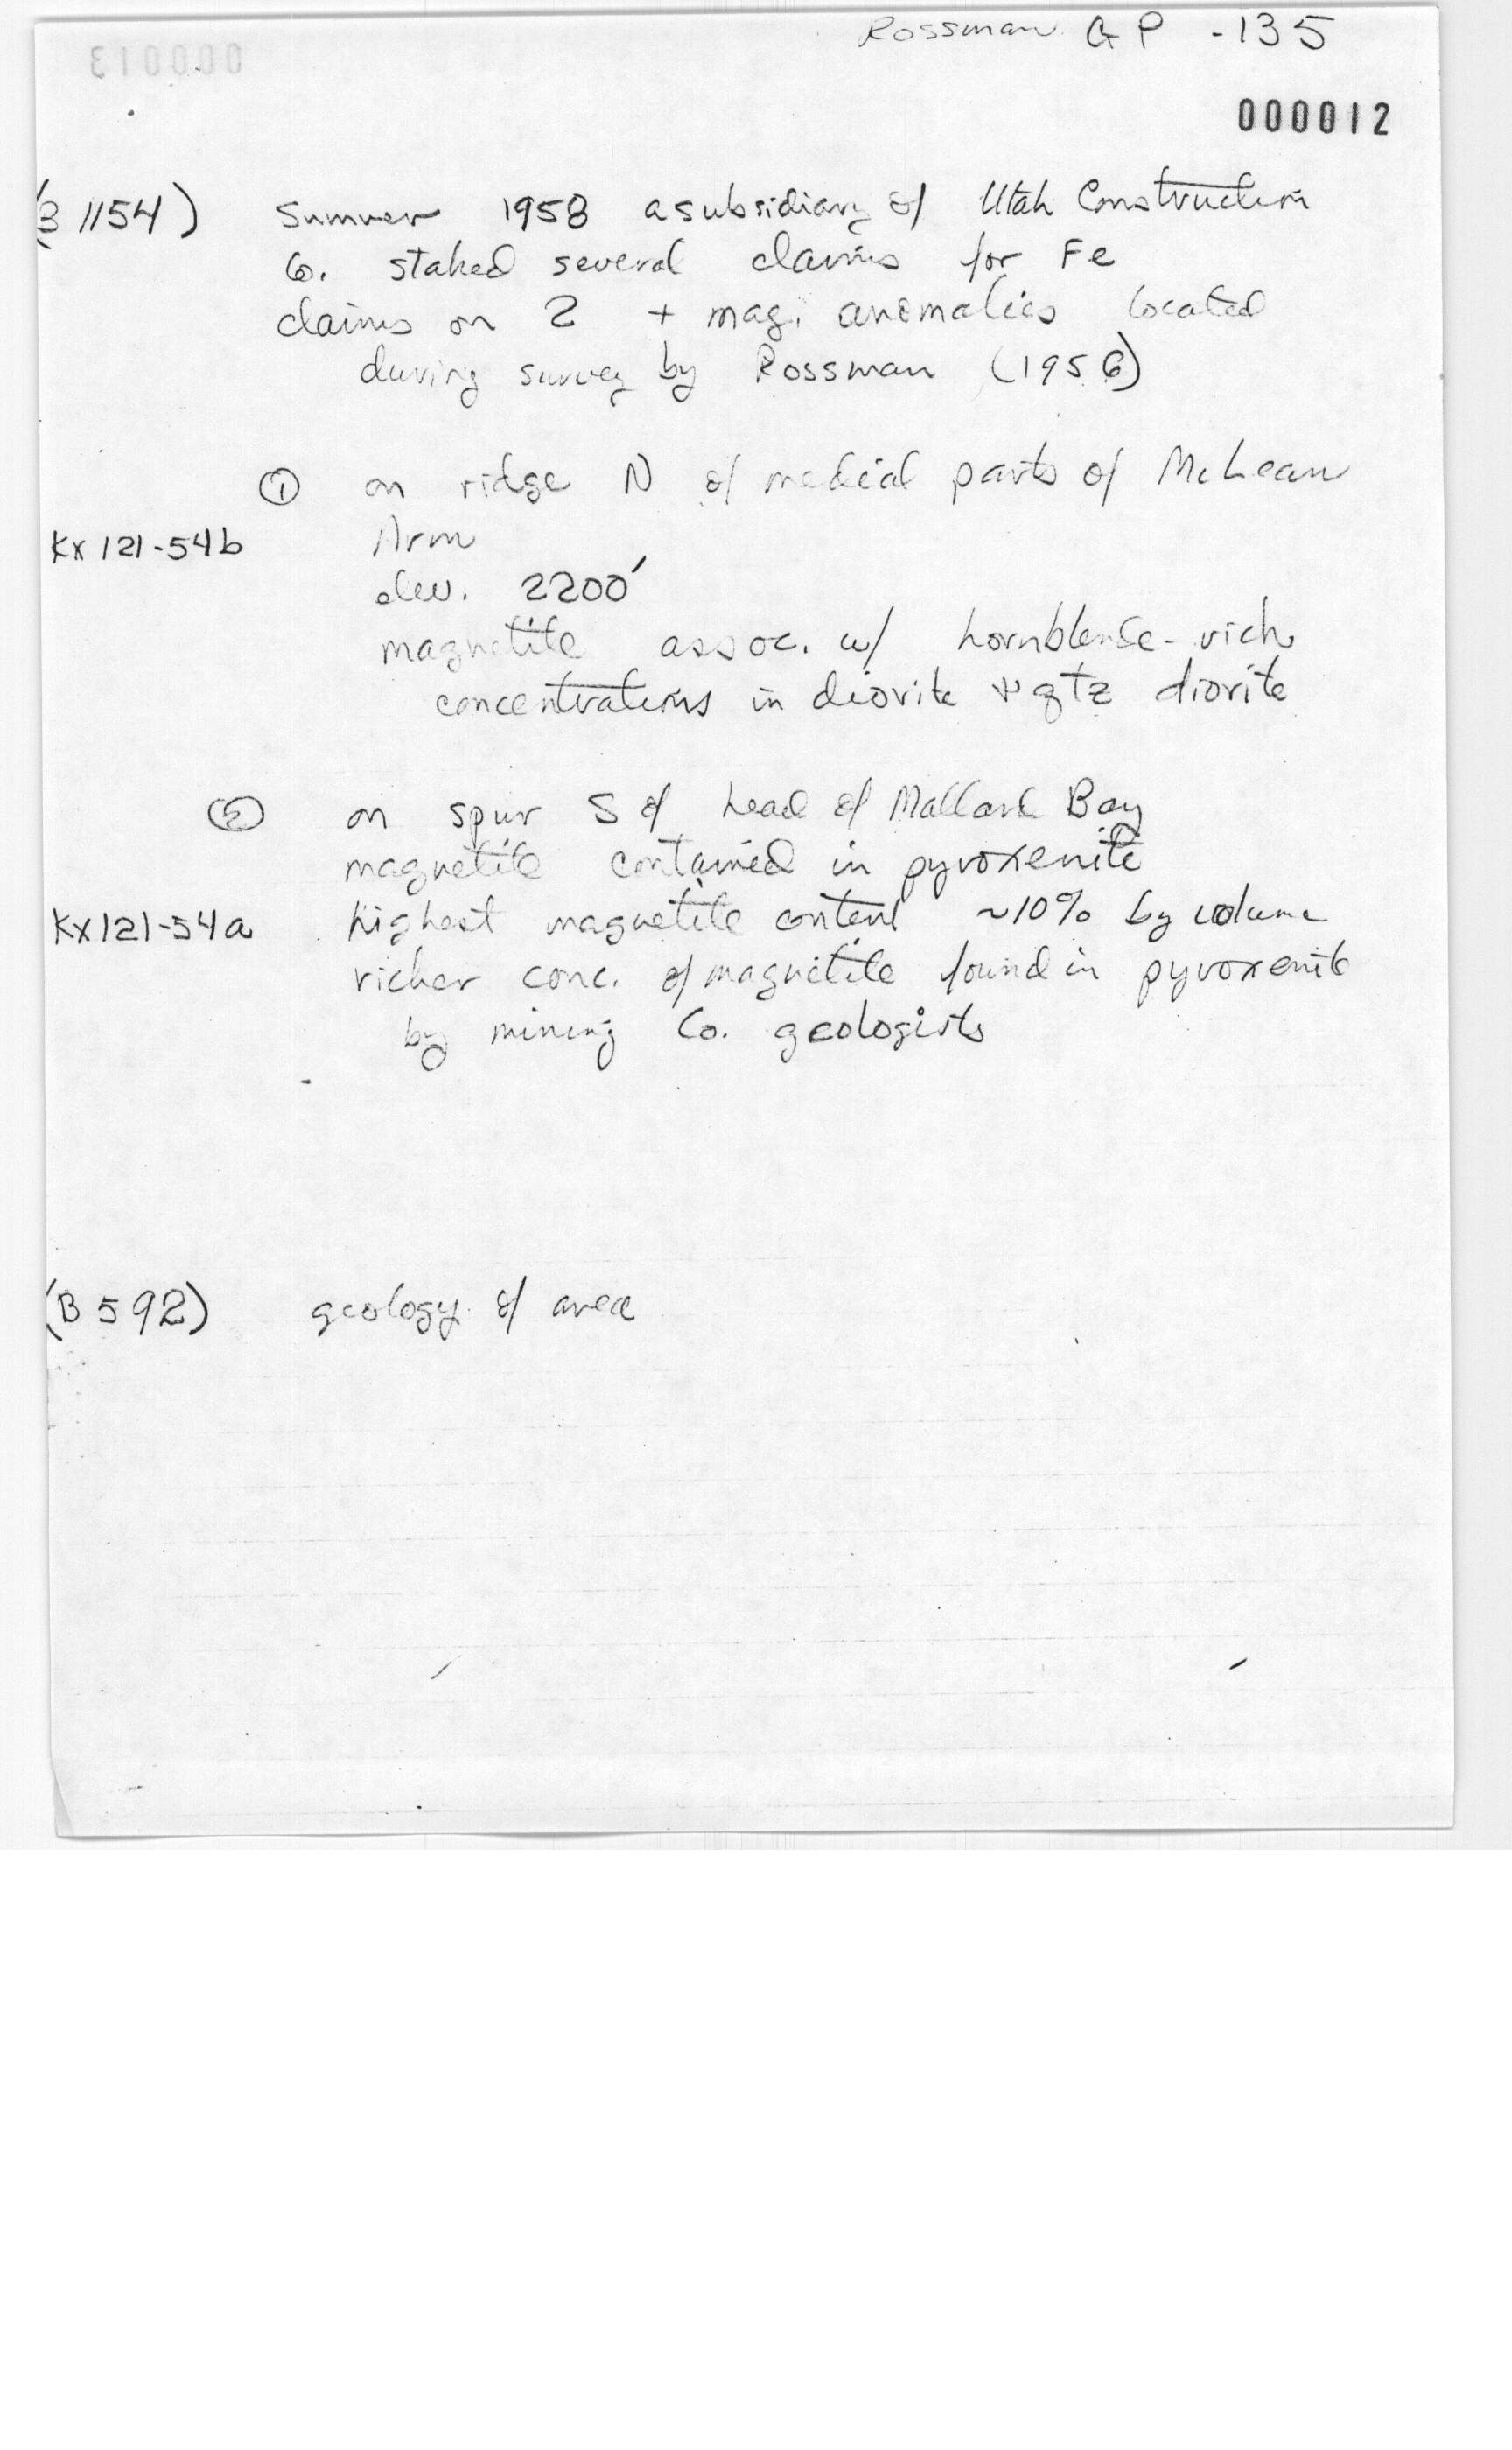 Rossman GP -135
000013
000012
(B 1154) Summer 1958 a subsidiary of Utah Construction
Co. staked several claims for Fe
claims on 2 + mag. anomalies located
during survey by Rossman (1956)
① on ridge N of medial parts of McLean
Kx 121-54b Arm
elev. 2200'
magnetite assoc. w/ hornblende-rich
concentrations in diorite + qtz diorite
② on spur S of head of Mallard Bay
magnetite contained in pyroxenite
Kx121-54a highest magnetite content ~10% by volume
richer conc. of magnetite found in pyroxenite
by mining Co. geologists
(B 592) geology of area